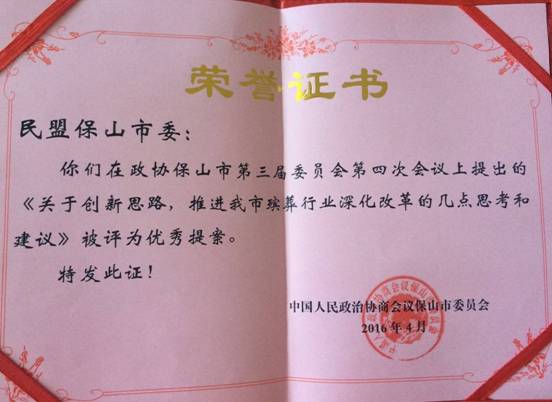 荣誉证书
民盟保山市委：
你们在政协保山市第三届委员会第四次会议上提出的
《关于创新思路，推进我市殡葬行业深化改革的几点思考和
建议》被评为优秀提案。
特发此证！
中国人民政治协商会议保山市委员会
2016年4月